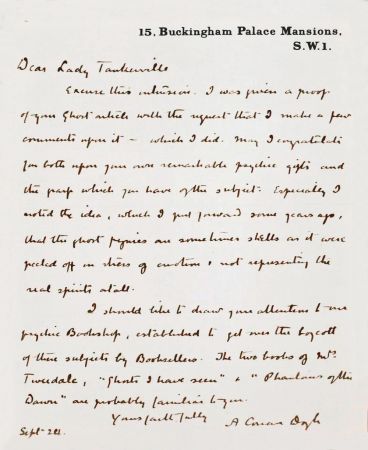 15, Buckingham Palace Mansions,
S.W.1.
Dear Lady Tankerville
Excuse this intrusion. I was given a proof
of your Ghost article with the request that I make a few
comments upon it – which I did. May I congratulate
you both upon your own remarkable psychic gifts and
the grasp which you have of the subject. Especially I
noted the idea, which I put forward some years ago,
that the ghost figures are sometimes shells as it were
peeled off in stress of emotion & not representing the
real spirits at all.
I should like to draw your attention to our
psychic Bookshop, established to get over the boycott
of these subjects by Booksellers. The two books of Mrs
Tweedale, "Ghosts I have seen" & "Phantoms of the
Dawn" are probably familiar to you.
Yours faithfully
A Conan Doyle
Sept